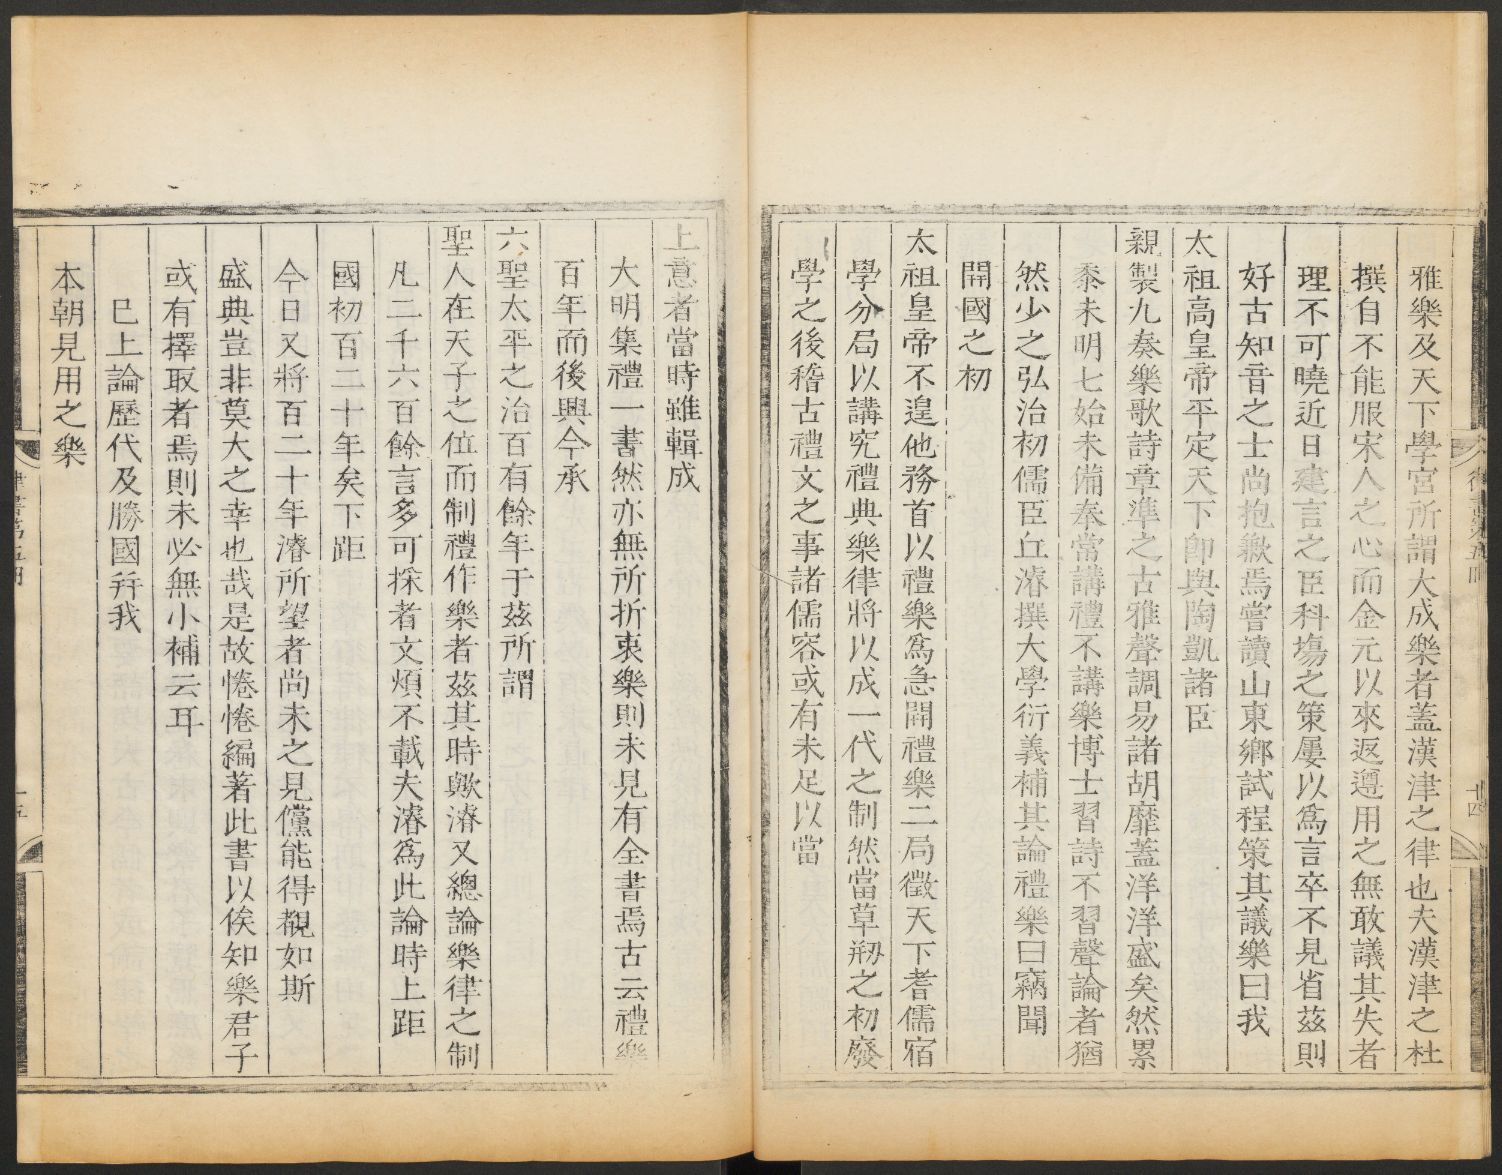 雅樂及天下學宮所謂大成樂者蓋漢津之律也夫漢津之杜
撰自不能服宋人之心而金元以來返遵用之無敢議其失者
理不可曉近日建言之臣科塲之策屢以爲言卒不見省茲則
好古知音之士尚抱歉焉嘗讀山東鄉試程策其議樂曰我
太祖高皇帝平定天下卽與陶凱諸臣
親製九奏樂歌詩章準之古雅聲調易諸胡靡蓋洋洋盛矣然累
黍未明七始未備奉常講禮不講樂博士習詩不習聲論者猶
然少之弘治初儒臣丘濬撰大學衍義補其論禮樂曰竊聞
開國之初
太祖皇帝不遑他務首以禮樂爲急開禮樂二局徵天下耆儒宿
學分局以講究禮典樂律將以成一代之制然當草刱之初廢
學之後稽古禮文之事諸儒容或有未足以當
上意者當時雖輯成
大明集禮一書然亦無所折衷樂則未見有全書焉古云禮樂
百年而後興今承
六聖太平之治百有餘年于茲所謂
聖人在天子之位而制禮作樂者茲其時歟濬又總論樂律之制
凡二千六百餘言多可採者文煩不載夫濬爲此論時上距
國初百二十年矣下距
今日又將百二十年濬所望者尚未之見儻能得覩如斯
盛典豈非莫大之幸也哉是故惓惓編著此書以俟知樂君子
或有擇取者焉則未必無小補云耳
巳上論歷代及勝國幷我
本朝見用之樂
律書第五冊
十四
十五